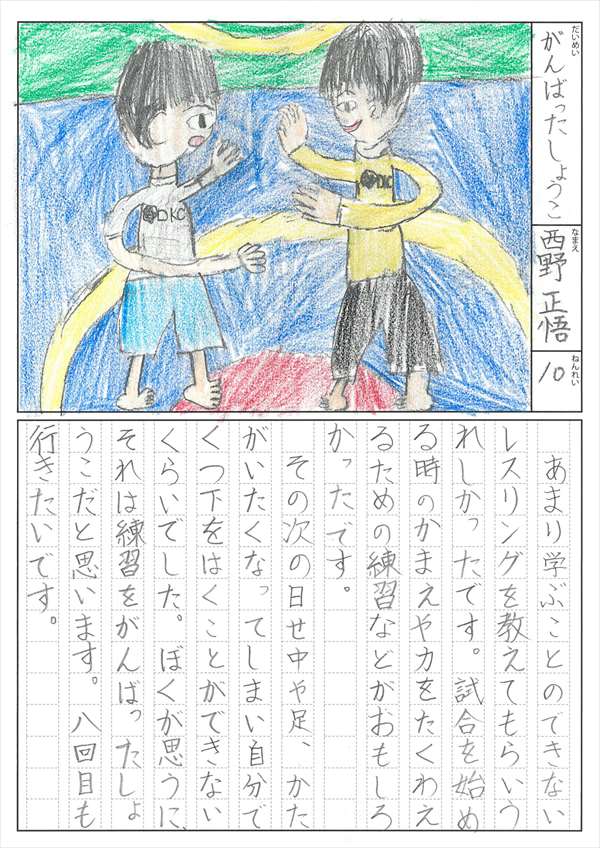 だいめい
がんばったしょうこ
なまえ
西野 正悟
ねんれい
10
DKC
DKC
あまり学ぶことのできない
レスリングを教えてもらいう
れしかったです。試合を始め
る時のかまえや力をたくわえ
るための練習などがおもしろ
かったです。
その次の日せ中や足、かた
がいたくなってしまい自分で
くつ下をはくことができない
くらいでした。ぼくが思うに、
それは練習をがんばったしょ
うこだと思います。八回目も
行きたいです。